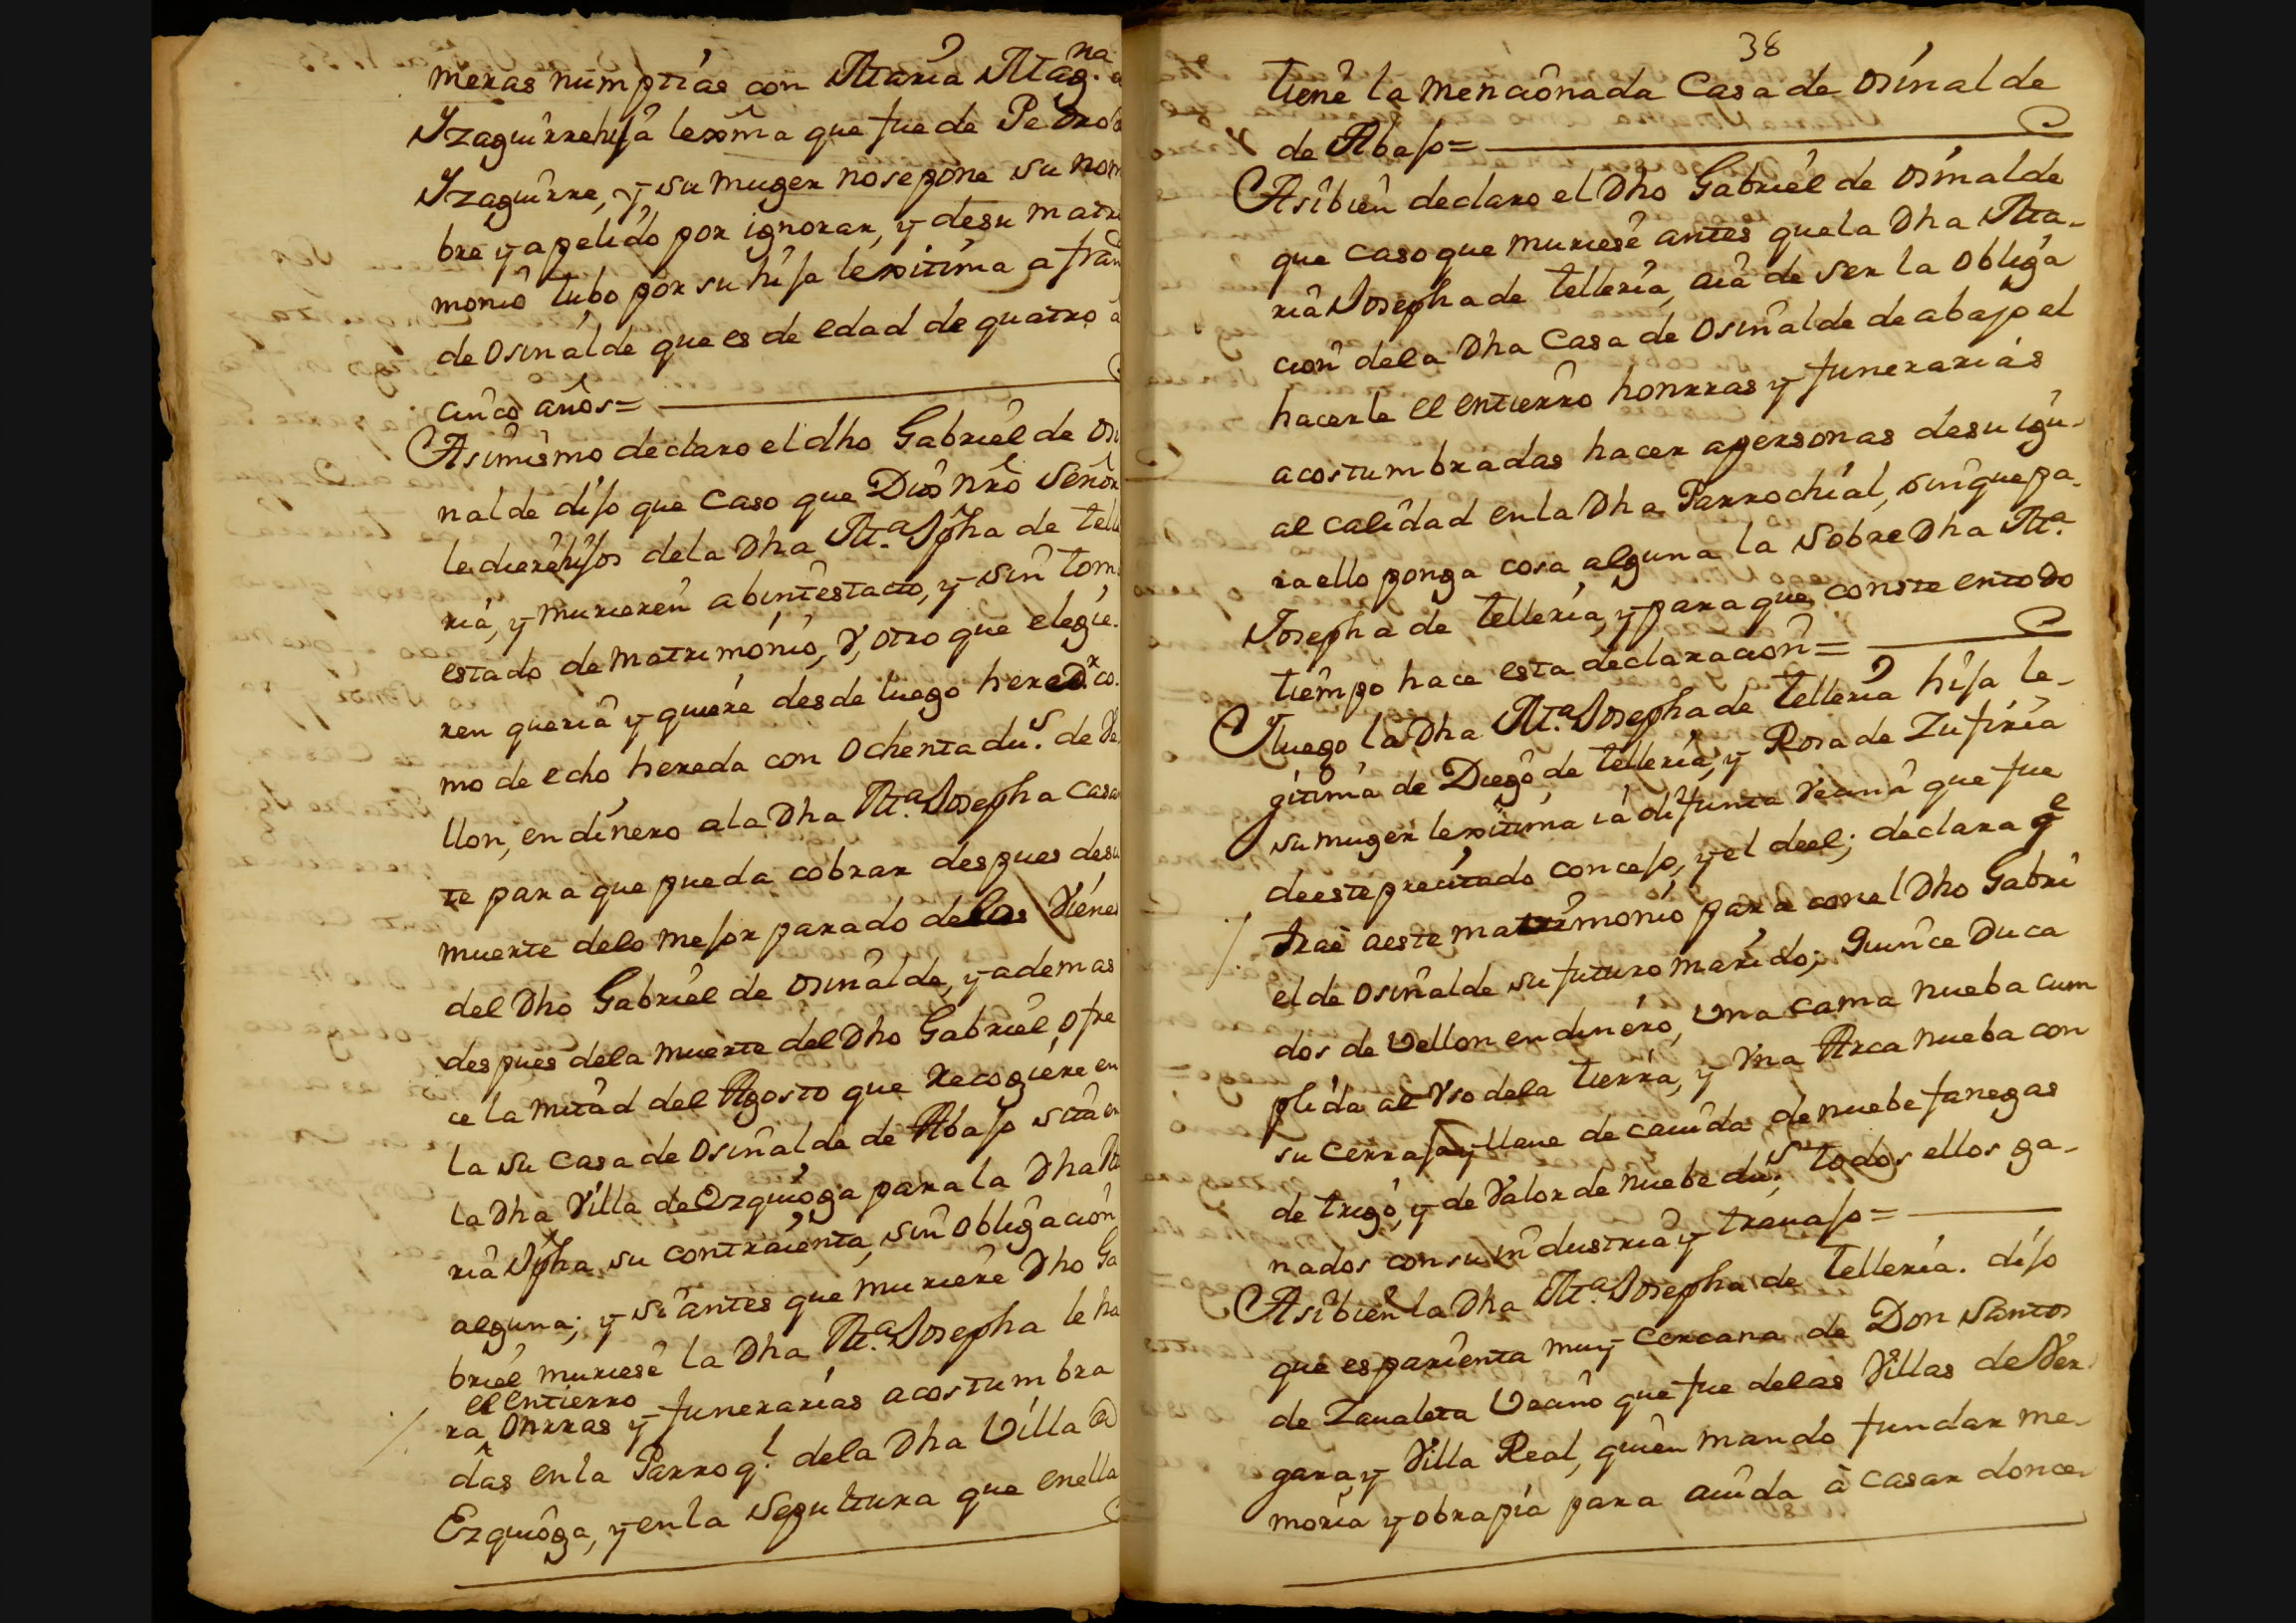 meras numptias con Maria Mag.na
Yzaguirre hija lexma que fue de Pedro
Yzaguirre, y su muger nosepone su nom
bre y apelido por ignorar, y desu matri
monio tubo por su hija lexitima a fran
de Osinalde que es de edad de quatro a
cinco años=
Asimismo declaro el dho Gabriel de Osi
nalde dijo que caso que Dios nro Señor
le diere hijos dela Dha Ma. Jpha de telle
ria, y murieren abintestato, y sin tom
estado de matrimonio, V, otro que elegie.
ren queria y quiere desde luego hered.r co.
mo de echo hereda con ochenta dus. de Ve
llon, en dinero ala Dha Ma. Josepha casa
te para que pueda cobrar despues desu
muerte delo mejor parado delos Viene
del Dho Gabriel de Osinalde, y ademas
despues dela muerte del Dho Gabriel, ofre
ce la mitad del Agosto que Recogiere en
la su casa de Osinalde de Abajo sita en
la Dha Villa de Ezquioga para la Dha Ma
ria Jpha su contraienta, sin obligacion
alguna; y si antes que muriere Dho Ga
briel muriese la Dha Ma. Josepha le ha
el entierro
ra, Onrras y funerarias acostumbra
das en la Parroql. dela Dha Villa @
Ezquioga, y en la sepultura que enella
38
tiene la mencionada Casa de Osinalde
de Abajo=
Asibien declaro el Dho Gabriel de Osinalde
que caso que muriese antes quela Dha Ma-
ria Josepha de telleria, aia de ser la obliga
cion dela Dha Casa de Osinalde de abajo el
hacerle el entierro honrras y funerarias
acostumbradas hacer apersonas desu igu-
al calidad enla Dha Parrochial, sinquepa-
ra ello ponga cosa alguna la sobre Dha Ma.
Josepha de telleria, y para que conste entodo
tiempo hace esta declaracion=
Yluego la Dha Ma. Josepha de telleria hija le-
gitima de Diego de telleria, y Rosa de Zufiria
su muger lexitima ia difunta Vecina que fue
deeste precitado concejo, y el deel; declara qe
trae aeste matrimonio para conel Dho Gabri
el de Osinalde su futuro marido; Quince Duca
dos de Vellon en dinero, Una cama nueba cum
plida al Vso dela tierra, y Vna Arca nueba con
su cerraja y llave de cavida de nuebe fanegas
de trigo, y de Valor de nuebe dus. todos ellos ga-
nados con su industria y travajo=
Asibien la Dha Ma. Josepha de telleria. dijo
que es parienta muy cercana de Don Santos
de Zavaleta Vecino que fue delas Villas de Ver
gara, y Villa Real, quien mando fundar me-
moria y obrapia para aiuda à casar donce-